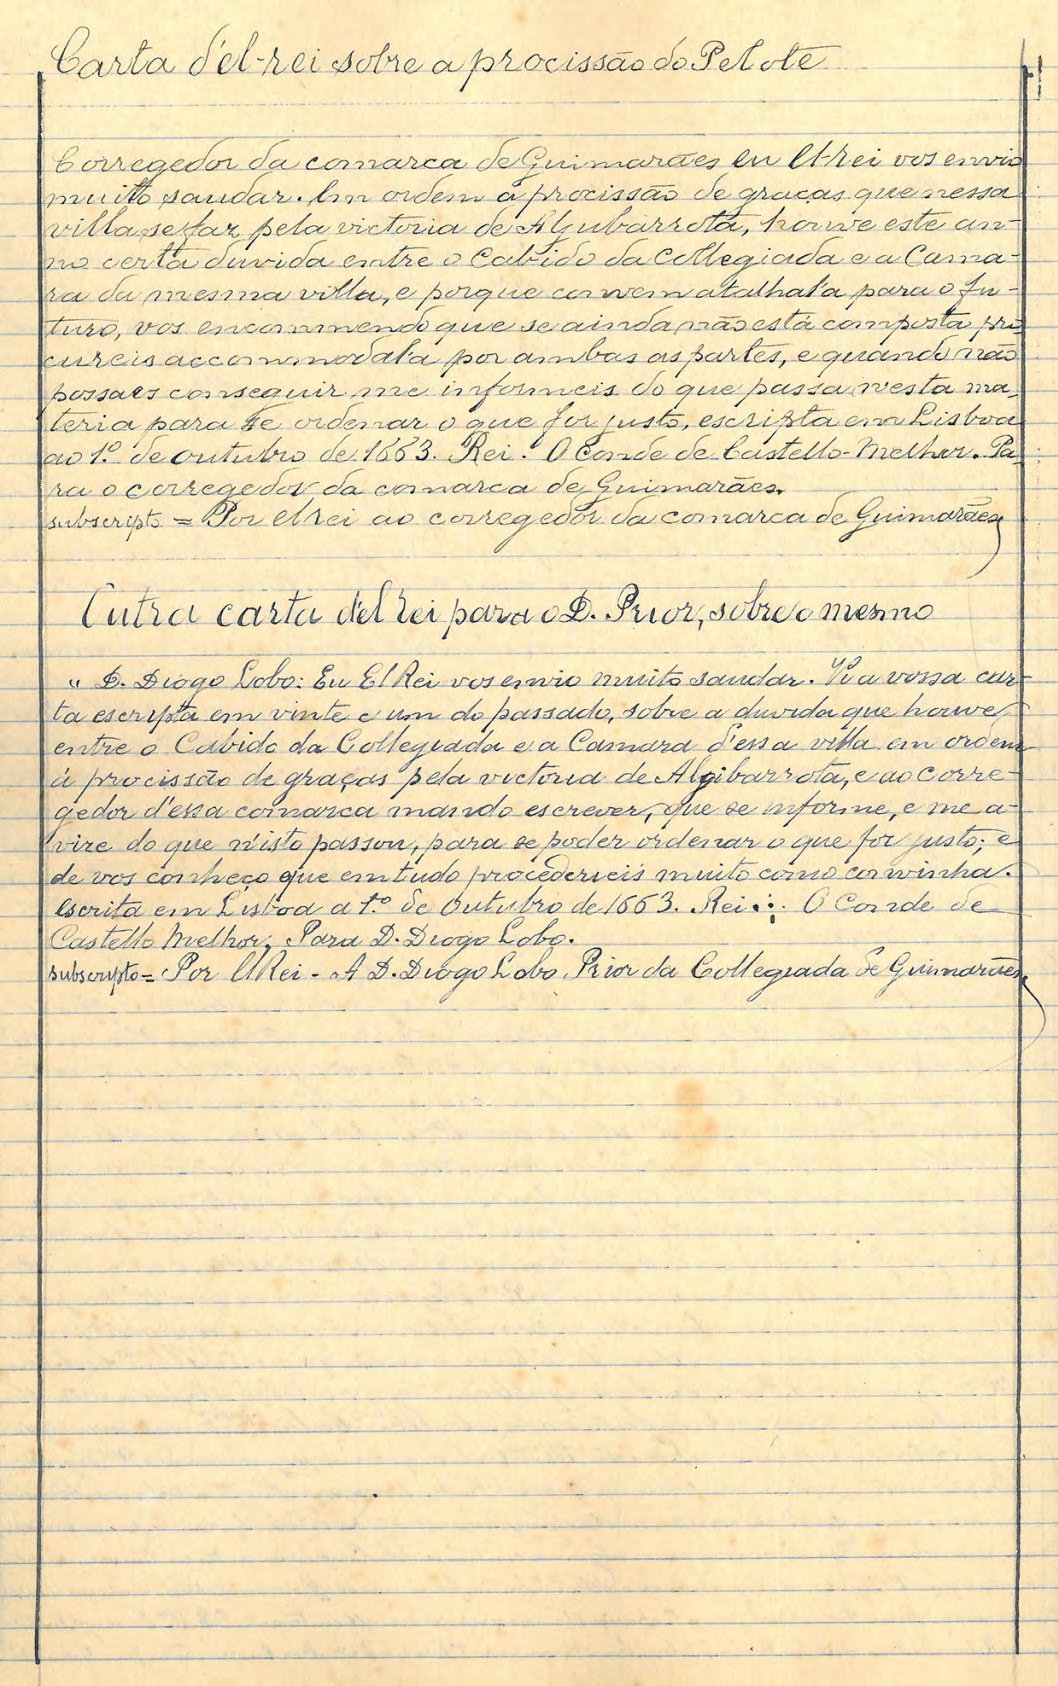 Carta d'el-rei sobre a procissão do Pelote
Corregedor da comarca de Guimarães eu El-rei vos envio
muitto saudar. Em ordem á procissão de graças que nessa
villa se faz pela victoria de Aljubarrota, houve este an-
no certa duvida entre o Cabido da Collegiada e a Cama-
ra da mesma villa, e porque convem atalhala para o fu-
turo, vos encommendo que se ainda não está composta pro-
cureis accommodala por ambas as partes, e quando não
possaes conseguir, me informeis do que passa n'esta ma-
teria para se ordenar o que for justo, escripta em Lisboa
ao 1.º de outubro de 1663. Rei. O Conde de Castello-Melhor. Pa-
ra o corregedor da comarca de Guimarães.
subscripto = Por El rei ao corregedor da comarca de Guimarães
Outra carta d'el rei para o D. Prior, sobre o mesmo
" D. Diogo Lobo: Eu El Rei vos envio muito saudar. Vi a vossa car-
ta escripta em vinte e um do passado, sobre a duvida que houve
entre o Cabido da Collegiada e a Camara d'essa villa em ordem
á procissão de graças pela victoria de Algibarrota, e ao corre-
gedor d'essa comarca mando escrever, que se informe, e me a-
vize do que n'isto passou, para se poder ordenar o que for justo; e
de vos conheço que em tudo procederieis muito como convinha.
Escrita em Lisboa a 1.º de Outubro de 1663. Rei.:. O Conde de
Castello Melhor. Para D. Diogo Lobo.
subscripto = Por El Rei - A D. Diogo Lobo, Prior da Collegiada de Guimarães